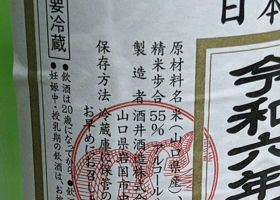 日本
令和六年
原材料名 米(山口県産)、
精米歩合 55% アルコール
製造者 酒井酒造株式会社
山口県岩国市中
保存方法 冷蔵庫に保管の
お早めにお召し
要冷蔵
●飲酒は20歳になってから。
●妊娠中・授乳期の飲酒は、お